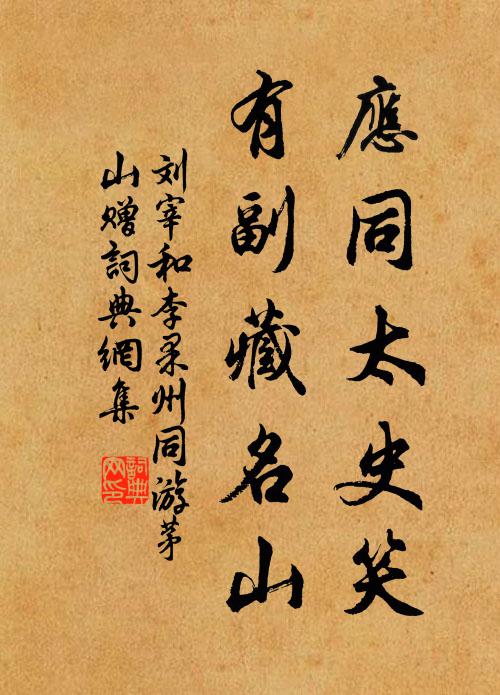 應同太史笑
有副藏名山
刘宰和李果州同游茅
山赠詞典網集
詞典
网印